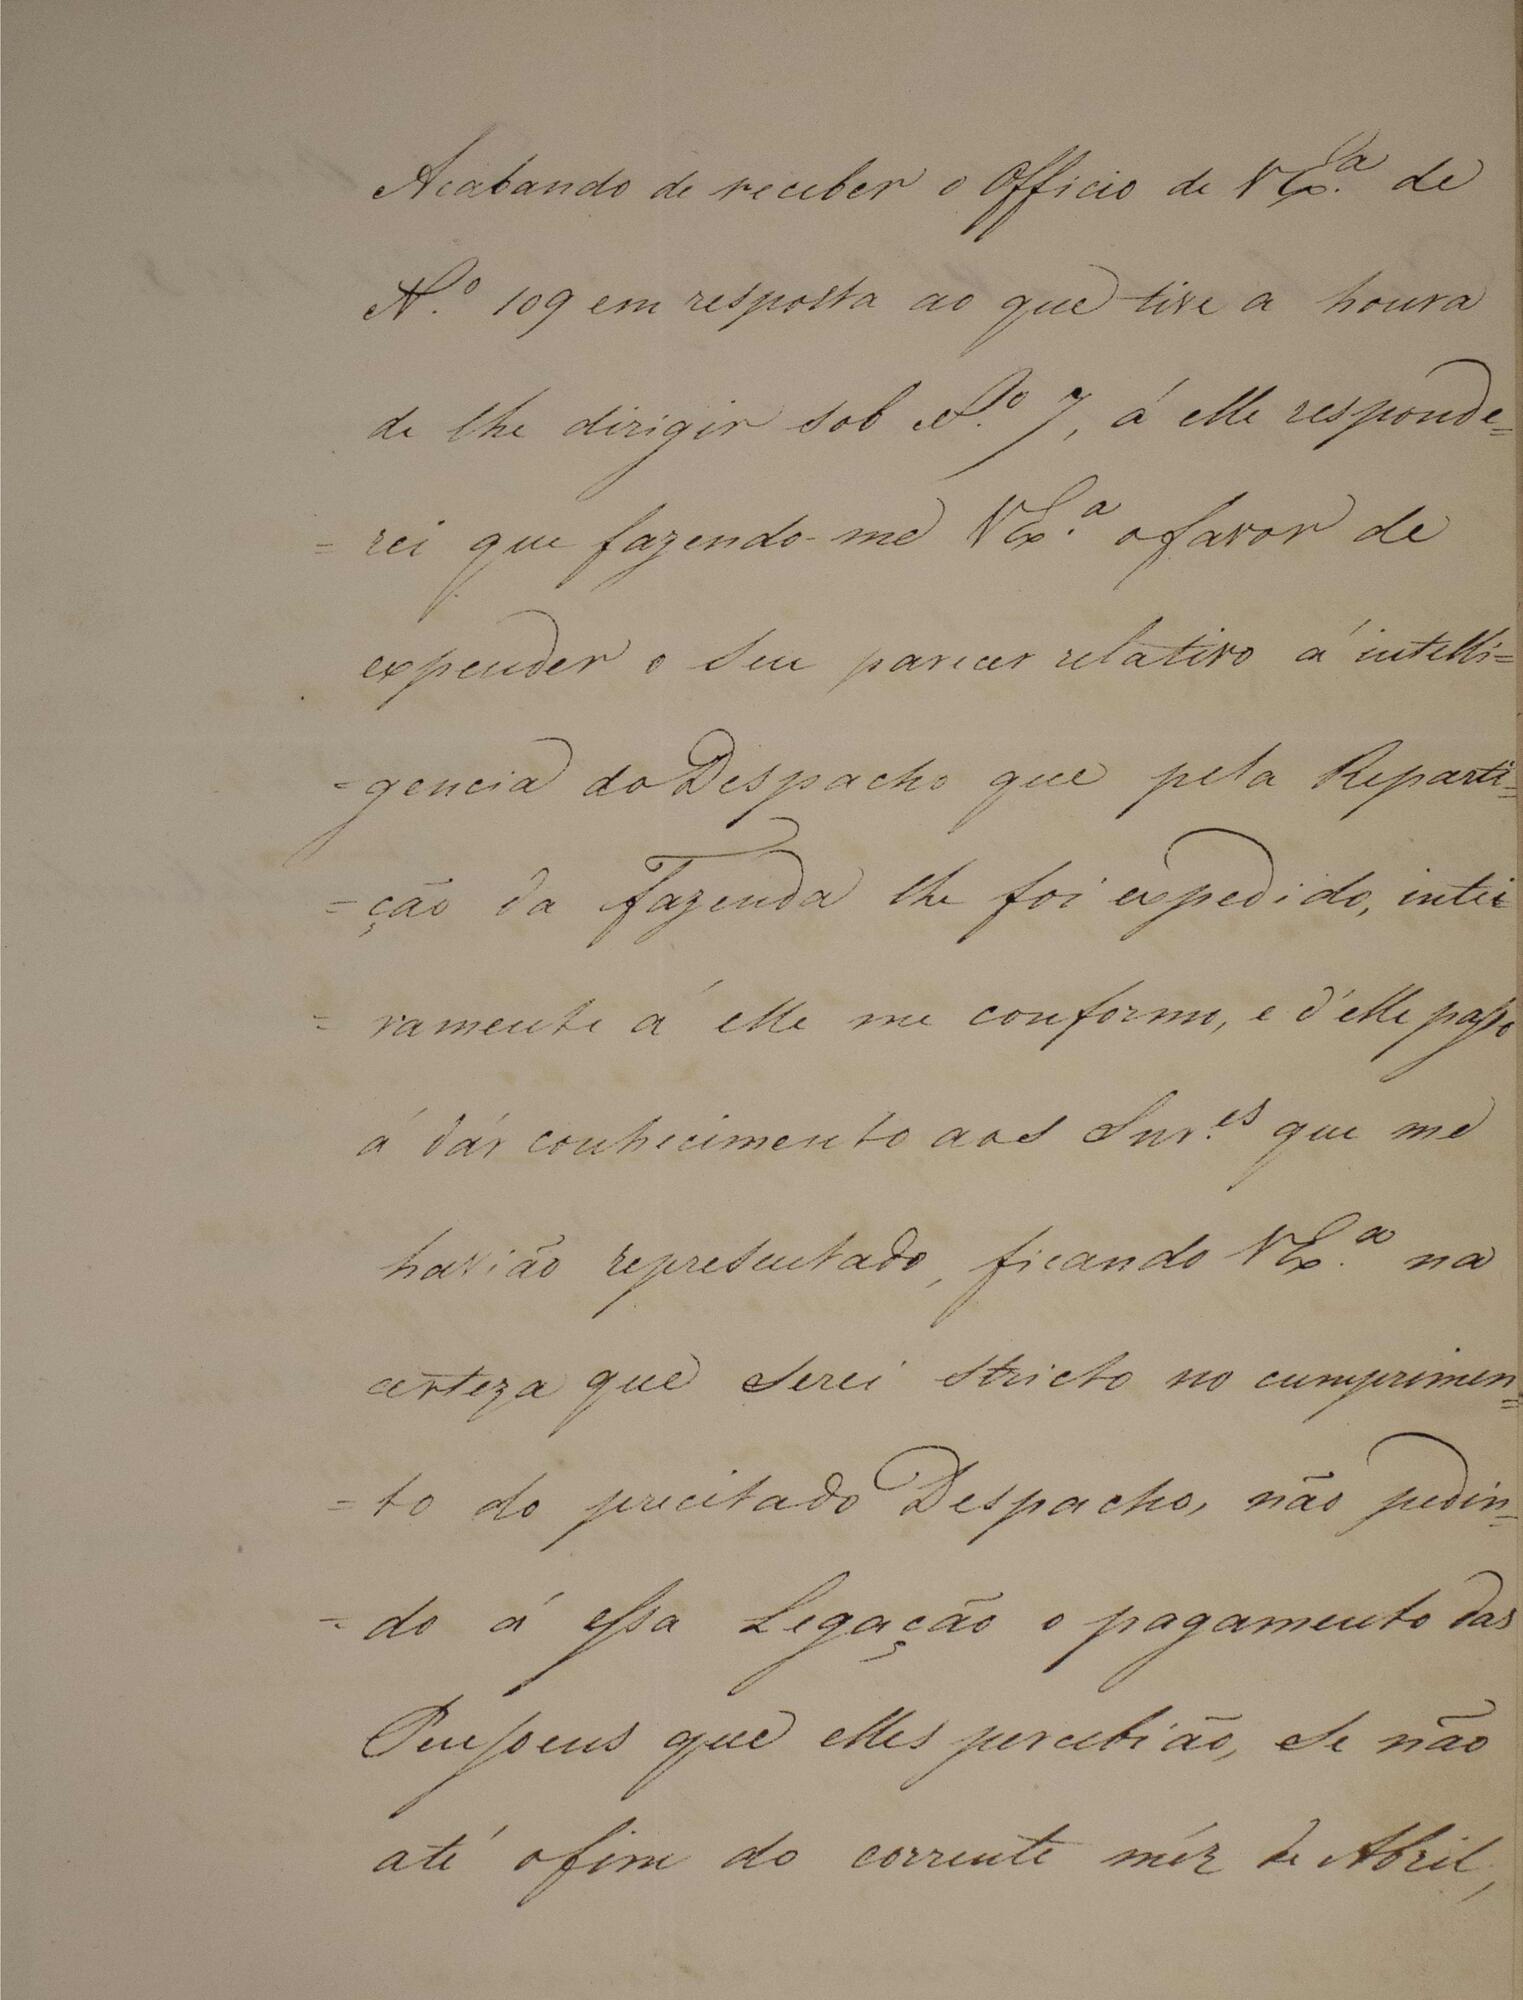 Acabando de receber o Officio de V Ex.ª de
N.º 109 em resposta ao que tive a honra
de lhe dirigir sob N.º 7, á elle responde=
=rei que fazendo-me V Ex.ª o favor de
expender o seu parecer relativo á intelli=
=gencia do Despacho que pela Reparti=
=ção da Fazenda lhe foi expedido, intei
=ramente á elle me conformo, e d'elle passo
á dár conhecimento aos Snr.es que me
havião representado, ficando V Ex.ª na
certeza que serei stricto no cumprimen=
=to do precitado Despacho, não pedin=
=do á essa Legação o pagamento das
Pensoens que elles percebião, se não
até o fim do corrente mêz de Abril,